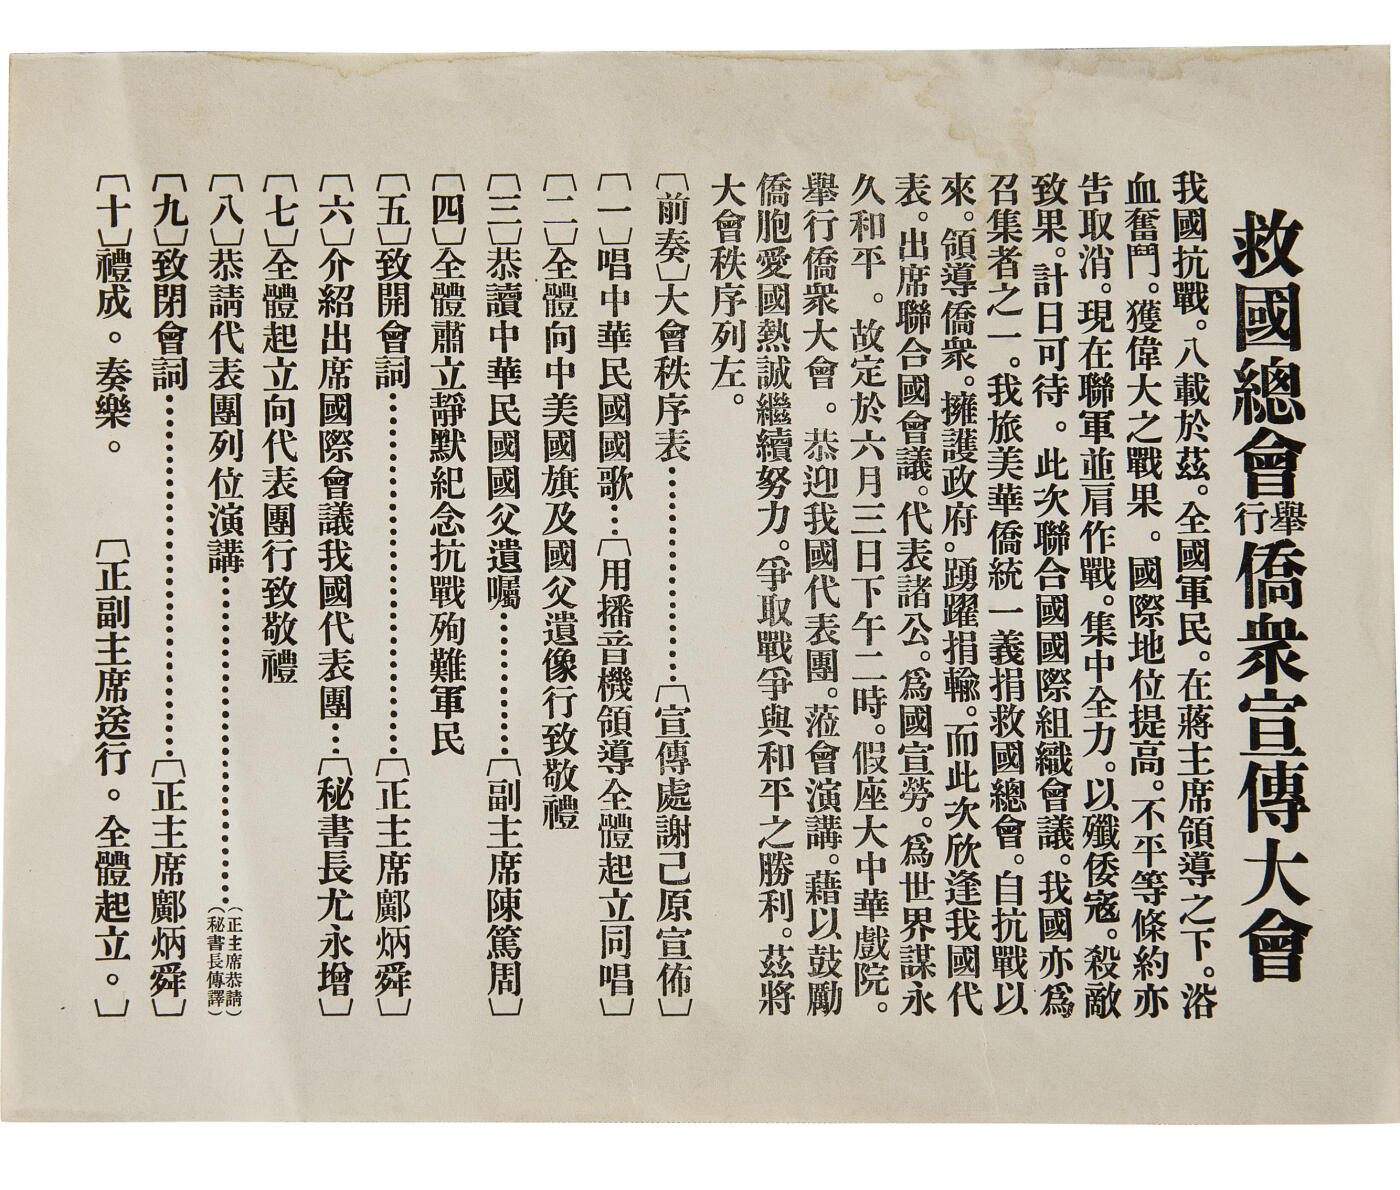 救國總會舉行僑衆宣傳大會
我國抗戰。八載於茲。全國軍民。在蔣主席領導之下。浴
血奮鬥。獲偉大之戰果。國際地位提高。不平等條約亦
告取消。現在聯軍並肩作戰。集中全力。以殲倭寇。殺敵
致果。計日可待。此次聯合國國際組織會議。我國亦爲
召集者之一。我旅美華僑統一義捐救國總會。自抗戰以
來。領導僑衆。擁護政府。踴躍捐輸。而此次欣逢我國代
表。出席聯合國會議。代表諸公。爲國宣勞。爲世界謀永
久和平。故定於六月三日下午二時。假座大中華戲院。
舉行僑衆大會。恭迎我國代表團。蒞會演講。藉以鼓勵
僑胞愛國熱誠繼續努力。爭取戰爭與和平之勝利。茲將
大會秩序列左。
〔前奏〕大會秩序表…………〔宣傳處謝己原宣佈〕
〔一〕唱中華民國國歌…〔用播音機領導全體起立同唱〕
〔二〕全體向中美國旗及國父遺像行致敬禮
〔三〕恭讀中華民國國父遺囑…………〔副主席陳篤周〕
〔四〕全體肅立靜默紀念抗戰殉難軍民
〔五〕致開會詞…………………………〔正主席鄺炳舜〕
〔六〕介紹出席國際會議我國代表團…〔秘書長尤永增〕
〔七〕全體起立向代表團行致敬禮
〔八〕恭請代表團列位演講…………………（正主席恭請）（秘書長傳譯）
〔九〕致閉會詞…………………………〔正主席鄺炳舜〕
〔十〕禮成。奏樂。〔正副主席送行。全體起立。〕